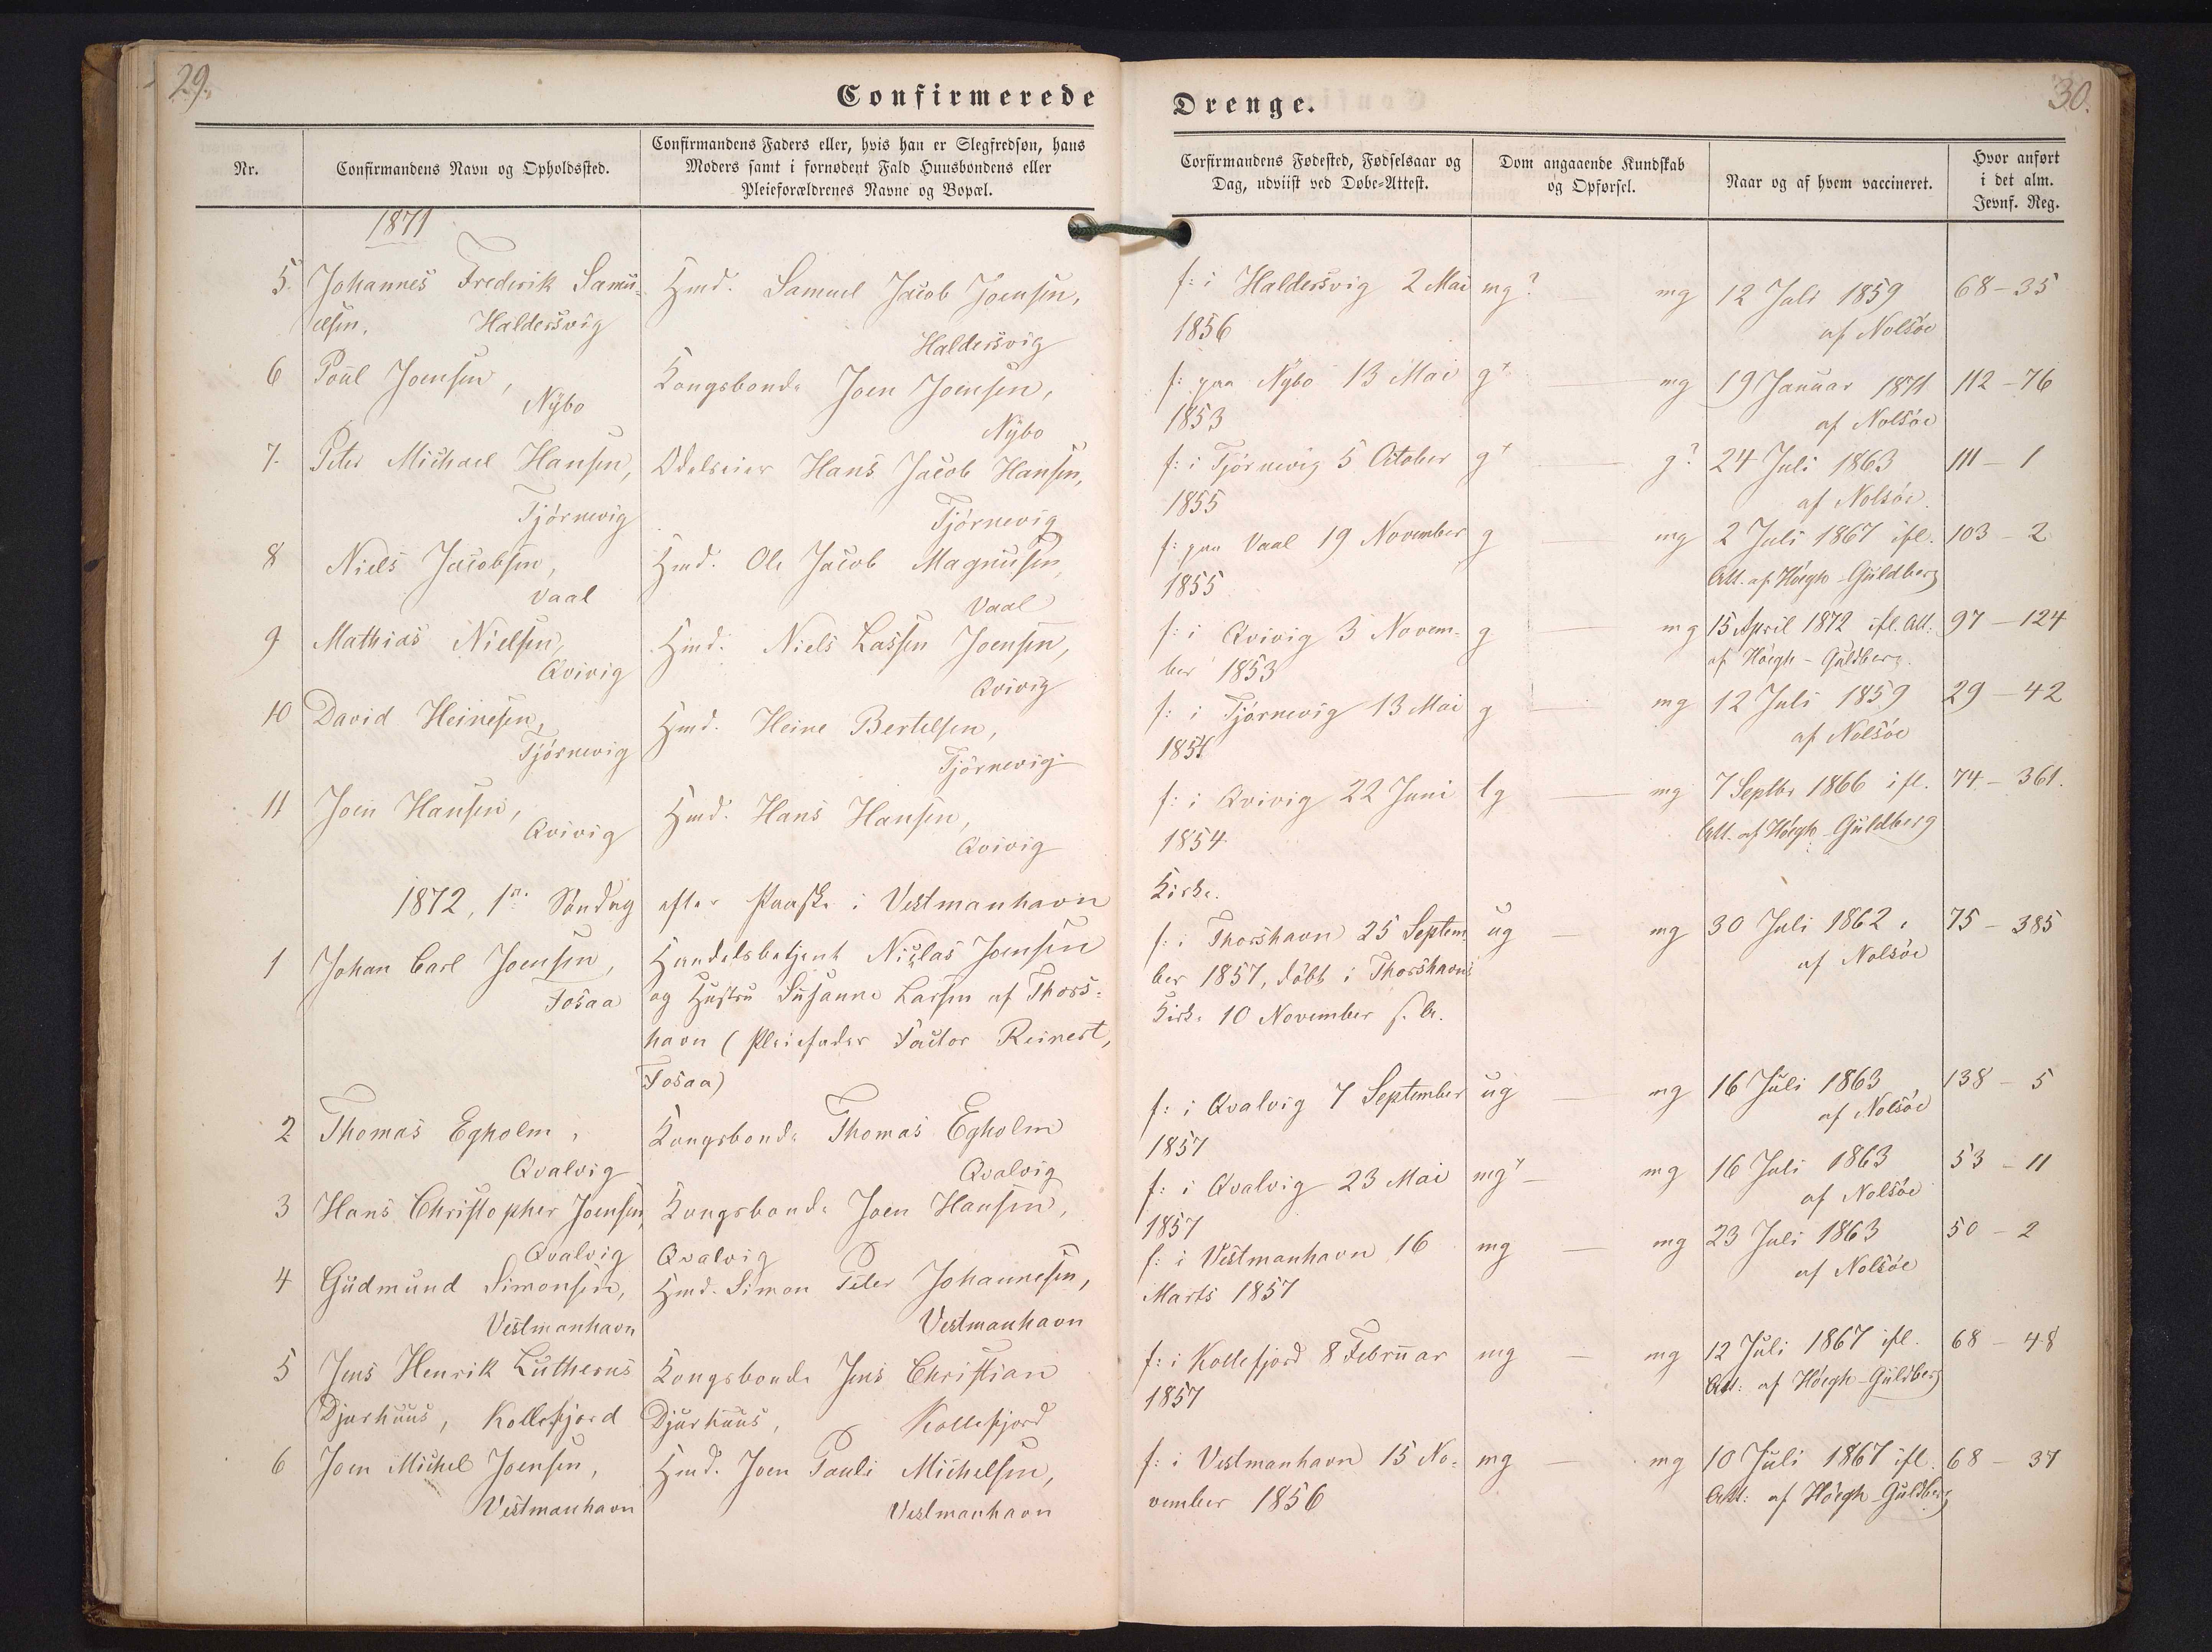 29.
Confirmerede
Nr.
Confirmandens Navn og Opholdssted.
Confirmandens Faders eller, hvis han er Slegfredsøn, hans
Moders samt i fornødent Fald Huusbondens eller
Pleieforældrenes Navne og Bopæl.
1871
5. Johannes Frederik Samu- Hmd. Samuel Jacob Joensen,
elsen, Haldersvig
Haldersvig
6 Poul Joensen, Kongsbonde Joen Joensen,
Nybo
Nybo
7. Peter Michael Hansen, Odelseier Hans Jacob Hansen,
Tjörnevig Tjörnevig
8 Niels Jacobsen, Hmd. Ole Jacob Magnusen,
Vaal Vaal
9 Mathias Nielsen, Hmd. Niels Lassen Joensen,
Qvivig Qvivig
10 David Heinesen, Hmd. Heine Bertelsen,
Tjörnevig Tjörnevig
11 Joen Hansen, Hmd. Hans Hansen,
Qvivig Qvivig
1872, 1ste Söndag efter Paaske i Vestmanhavn
1 Johan Carl Joensen, Handelsbetjent Niclas Joensen
Tosaa og Hustru Susanne Larsen af Thors-
havn (Pleiefader Factor Reinert,
Tosaa)
2 Thomas Egholm, Kongsbonde Thomas Egholm
Qvalvig Qvalvig
3 Hans Christopher Joensen, Kongsbonde Joen Hansen,
Qvalvig Qvalvig
4 Gudmund Simonsen, Hmd. Simon Peter Johannesen,
Vestmanhavn Vestmanhavn
5 Jens Henrik Lutherus Kongsbonde Jens Christian
Djurhuus, Kollefjord Djurhuus, Kollefjord
6 Joen Michel Joensen, Hmd. Joen Pauli Michelsen,
Vestmanhavn Vestmanhavn
30.
Drenge.
Corfirmandens Fødested, Fødselsaar og
Dag, udviist ved Døbe-Attest.
Dom angaaende Kundskab
og Opførsel.
Naar og af hvem vaccineret.
Hvor anført
i det alm.
Jevnf. Reg.
f: i Haldersvig 2 Mai mg? — mg 12 Juli 1859 68 – 35
1856 af Nolsöe
f: paa Nybo 13 Mai g+ — mg 19 Januar 1871 112 – 76
1853 af Nolsöe
f: i Tjörnevig 5 October g+ — g? 24 Juli 1863 111 – 1
1855 af Nolsöe.
f: paa Vaal 19 November g — mg 2 Juli 1867 ifl. 103 – 2
1855 Att. af Höegh-Guldberg
f: i Qvivig 3 Novem- g — mg 15 April 1872 ifl. Att. 97 – 124
ber 1853 af Höegh-Guldberg.
f: i Tjörnevig 13 Mai g — mg 12 Juli 1859 29 – 42
1854 af Nolsöe
f: i Qvivig 22 Juni tg — mg 7 Septbr 1866 ifl. 74 – 361.
1854 Att. af Höegh-Guldberg
Kirke.
f: i Thorshavn 25 Septem- ug — mg 30 Juli 1862, 75 – 385
ber 1857, döbt i Thorshavns af Nolsöe
Kirke 10 November s. A.
f: i Qvalvig 7 September ug — mg 16 Juli 1863 138 – 5
1857 af Nolsöe
f: i Qvalvig 23 Mai mg+ — mg 16 Juli 1863 53 – 11
1857 af Nolsöe
f: i Vestmanhavn 16 mg — mg 23 Juli 1863 50 – 2
Marts 1857 af Nolsöe
f: i Kollefjord 8 Februar mg — mg 12 Juli 1867 ifl. 68 – 48
1857 Att: af Höegh-Guldberg
f: i Vestmanhavn 15 No- mg — mg 10 Juli 1867 ifl. 68 – 37
vember 1856 Att: af Höegh-Guldberg